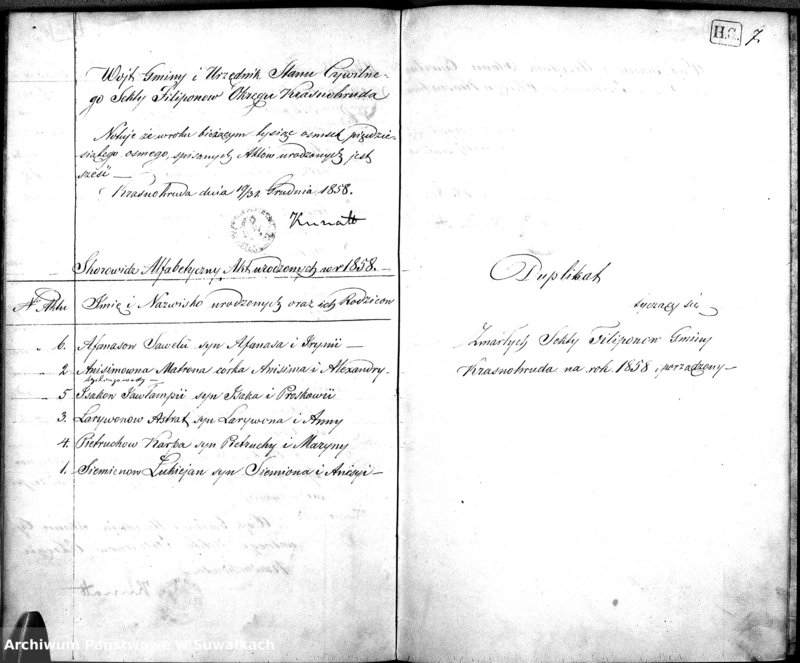 Wójt Gminy i Urzędnik Stanu Cywilne-
go Sekty Filiponow Okręgu Krasnohruda
Notuje że w roku bieżącym tysiąc osmset pięćdzie-
siątego osmego, spisanych Aktów urodzonych jest
sześć —
Krasnohruda dnia 19/31 Grudnia 1858.
Kunatt
Skorowidz Alfabetyczny Akt urodzonych w r 1858. —
N Aktu Imię i Nazwisko urodzonych oraz ich Rodziców
„ 6. Afanasow Sawelii syn Afanasa i Irynii —
„ 2 Anisimowna Matrona córka Anisima i Alexandry —
„ 5 Isakow Jawlampii syn Isaka i Preskowii
3. Larywonow Astrat syn Larywona i Anny
4. Pietruchow Karpa syn Pietruchy i Maryny
1. Siemienow Łukiejan syn Siemiona i Anisyi —
H.G. 7.
Duplikat
tyczący się
Zmarłych Sekty Filiponow Gminy
Krasnohruda na rok 1858, porządzony —
Kunatt
Archiwum Państwowe w Suwałkach